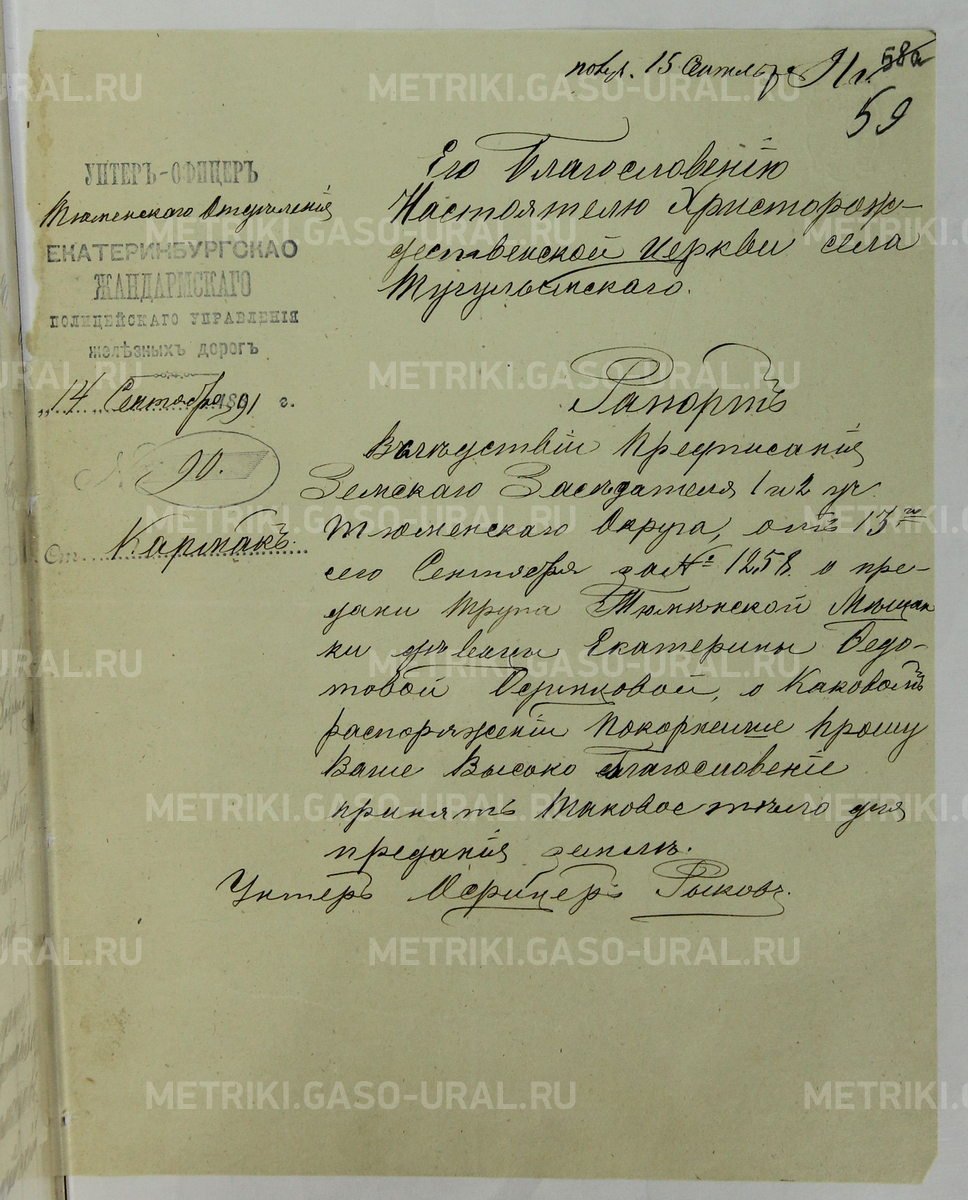 получ. 15 Сентября 91 г. 58а
59
УНТЕРЪ-ОФИЦЕРЪ
Тюменскаго Отделения
ЕКАТЕРИНБУРГСКАО
ЖАНДАРМСКАГО
ПОЛИЦЕЙСКАГО УПРАВЛЕНІЯ
желѣзныхъ дорогъ
„14 Сентября 1891 г.
№ 90.
Ст. Кармакъ.
Его Благословенію
Настоятелю Христорож-
дественской Церкви села
Тугулымскаго.
Рапортъ
Вслѣдствіи Предписанія
Земскаго Засѣдателя 1 и 2 уч
Тюменскаго Округа, отъ 13го
сего Сентября за № 1258. о пре-
дани трупа Тюмѣнской Мѣщан
ки дѣвецы Екатерины Федо-
товой, о каковомъ
распоряженіи покорнейше прошу
Ваше Высоко Благословеніе
принять таковое тѣло для
преданія землѣ.
Унтеръ Офицеръ Рыковъ.
METRIKI.GASO-URAL.RU